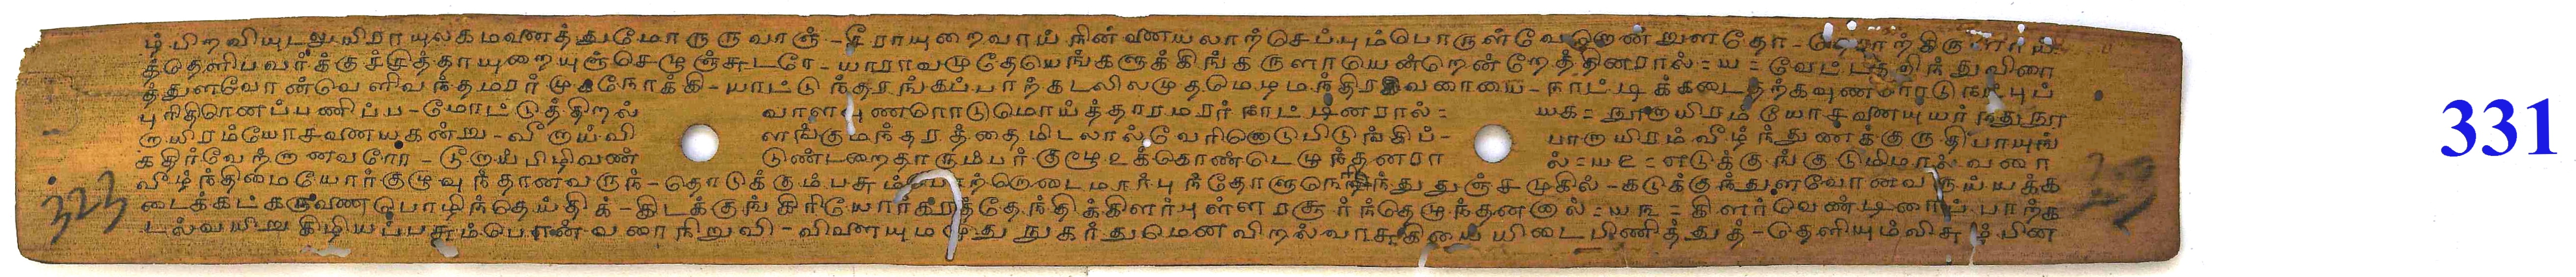 ம்பிறவியுடலுயிராயுலகமனைத்துமோருருவாஞ் - சீராயுறைவாய் நின்னையலாற்செப்பும்பொருள்வேறெண்றுளதோ -
த்தெளிபவர்க்குச்சித்தாயுறையுஞ்செழுஞ்சுடரே - யாராவமுதேயெங்களுக்கிங்கருளாயென்றென்றேத்தினரால் = ய = வேட்டதறிந்துவிரை
த்துளவோன்வெளிவந்தமரர் முகநோக்கி - யாட்டுந்தரங்கப்பாற்கடலிலமுதமெழமந்திரகிவரையை - நாட்டிக்கடைதற்கவுணரோடு நட்புப்
புரிதிரெனப்பணிப்ப - மோட்டுத்திறல் வாளவுணரொடுமொய்த்தாரமரர் நாட்டினரால் = யக = நூறாயிரம் யோசனையுயர்
றாயிரம்யோசனையகன்று - வீறாய்வி ளங்குமந்தரத்தை மிடலால்வேரினொடுபிடுங்கிப் - பாறாயிரம்வீழ்ந்துணக்குருதிபாயுங்
கதிர்வேற்றானவரோ - டூறாய்பிழிவண் டுண்டறைதாரும்பர்குழூஉக்கொண்டெழுந்தனரா ல் = ய௨ = எடுக்குங்குடுமிமால்வரை
வீழ்ந்திமையோர்குழுவுந்தானவருந் - தொடுக்கும்பசும்பொற்றொடைமார்புந்தோளுநெரிந்துதுஞ்சமுகில் - கடுக்குந்துளவோனவருய்யக்க
டைக்கட்கருணைபொழிந்தெய்திக் - கிடக்குங்கிரியோர்கரத்தேந்திக்கிளர்புள்ளரசூர்ந்தெழுந்தனனால் = ய௩ = கிளர்வெண்டிரைப்பாற்க
டல்வயிறுகிழியப்பசும்பொன்வரைநிறுவி - விளையுமமுதுநுகர்துமெனவிறல்வாசுகியையிடைபிணித்துத் - தெளியும்விசும்பின
323
331